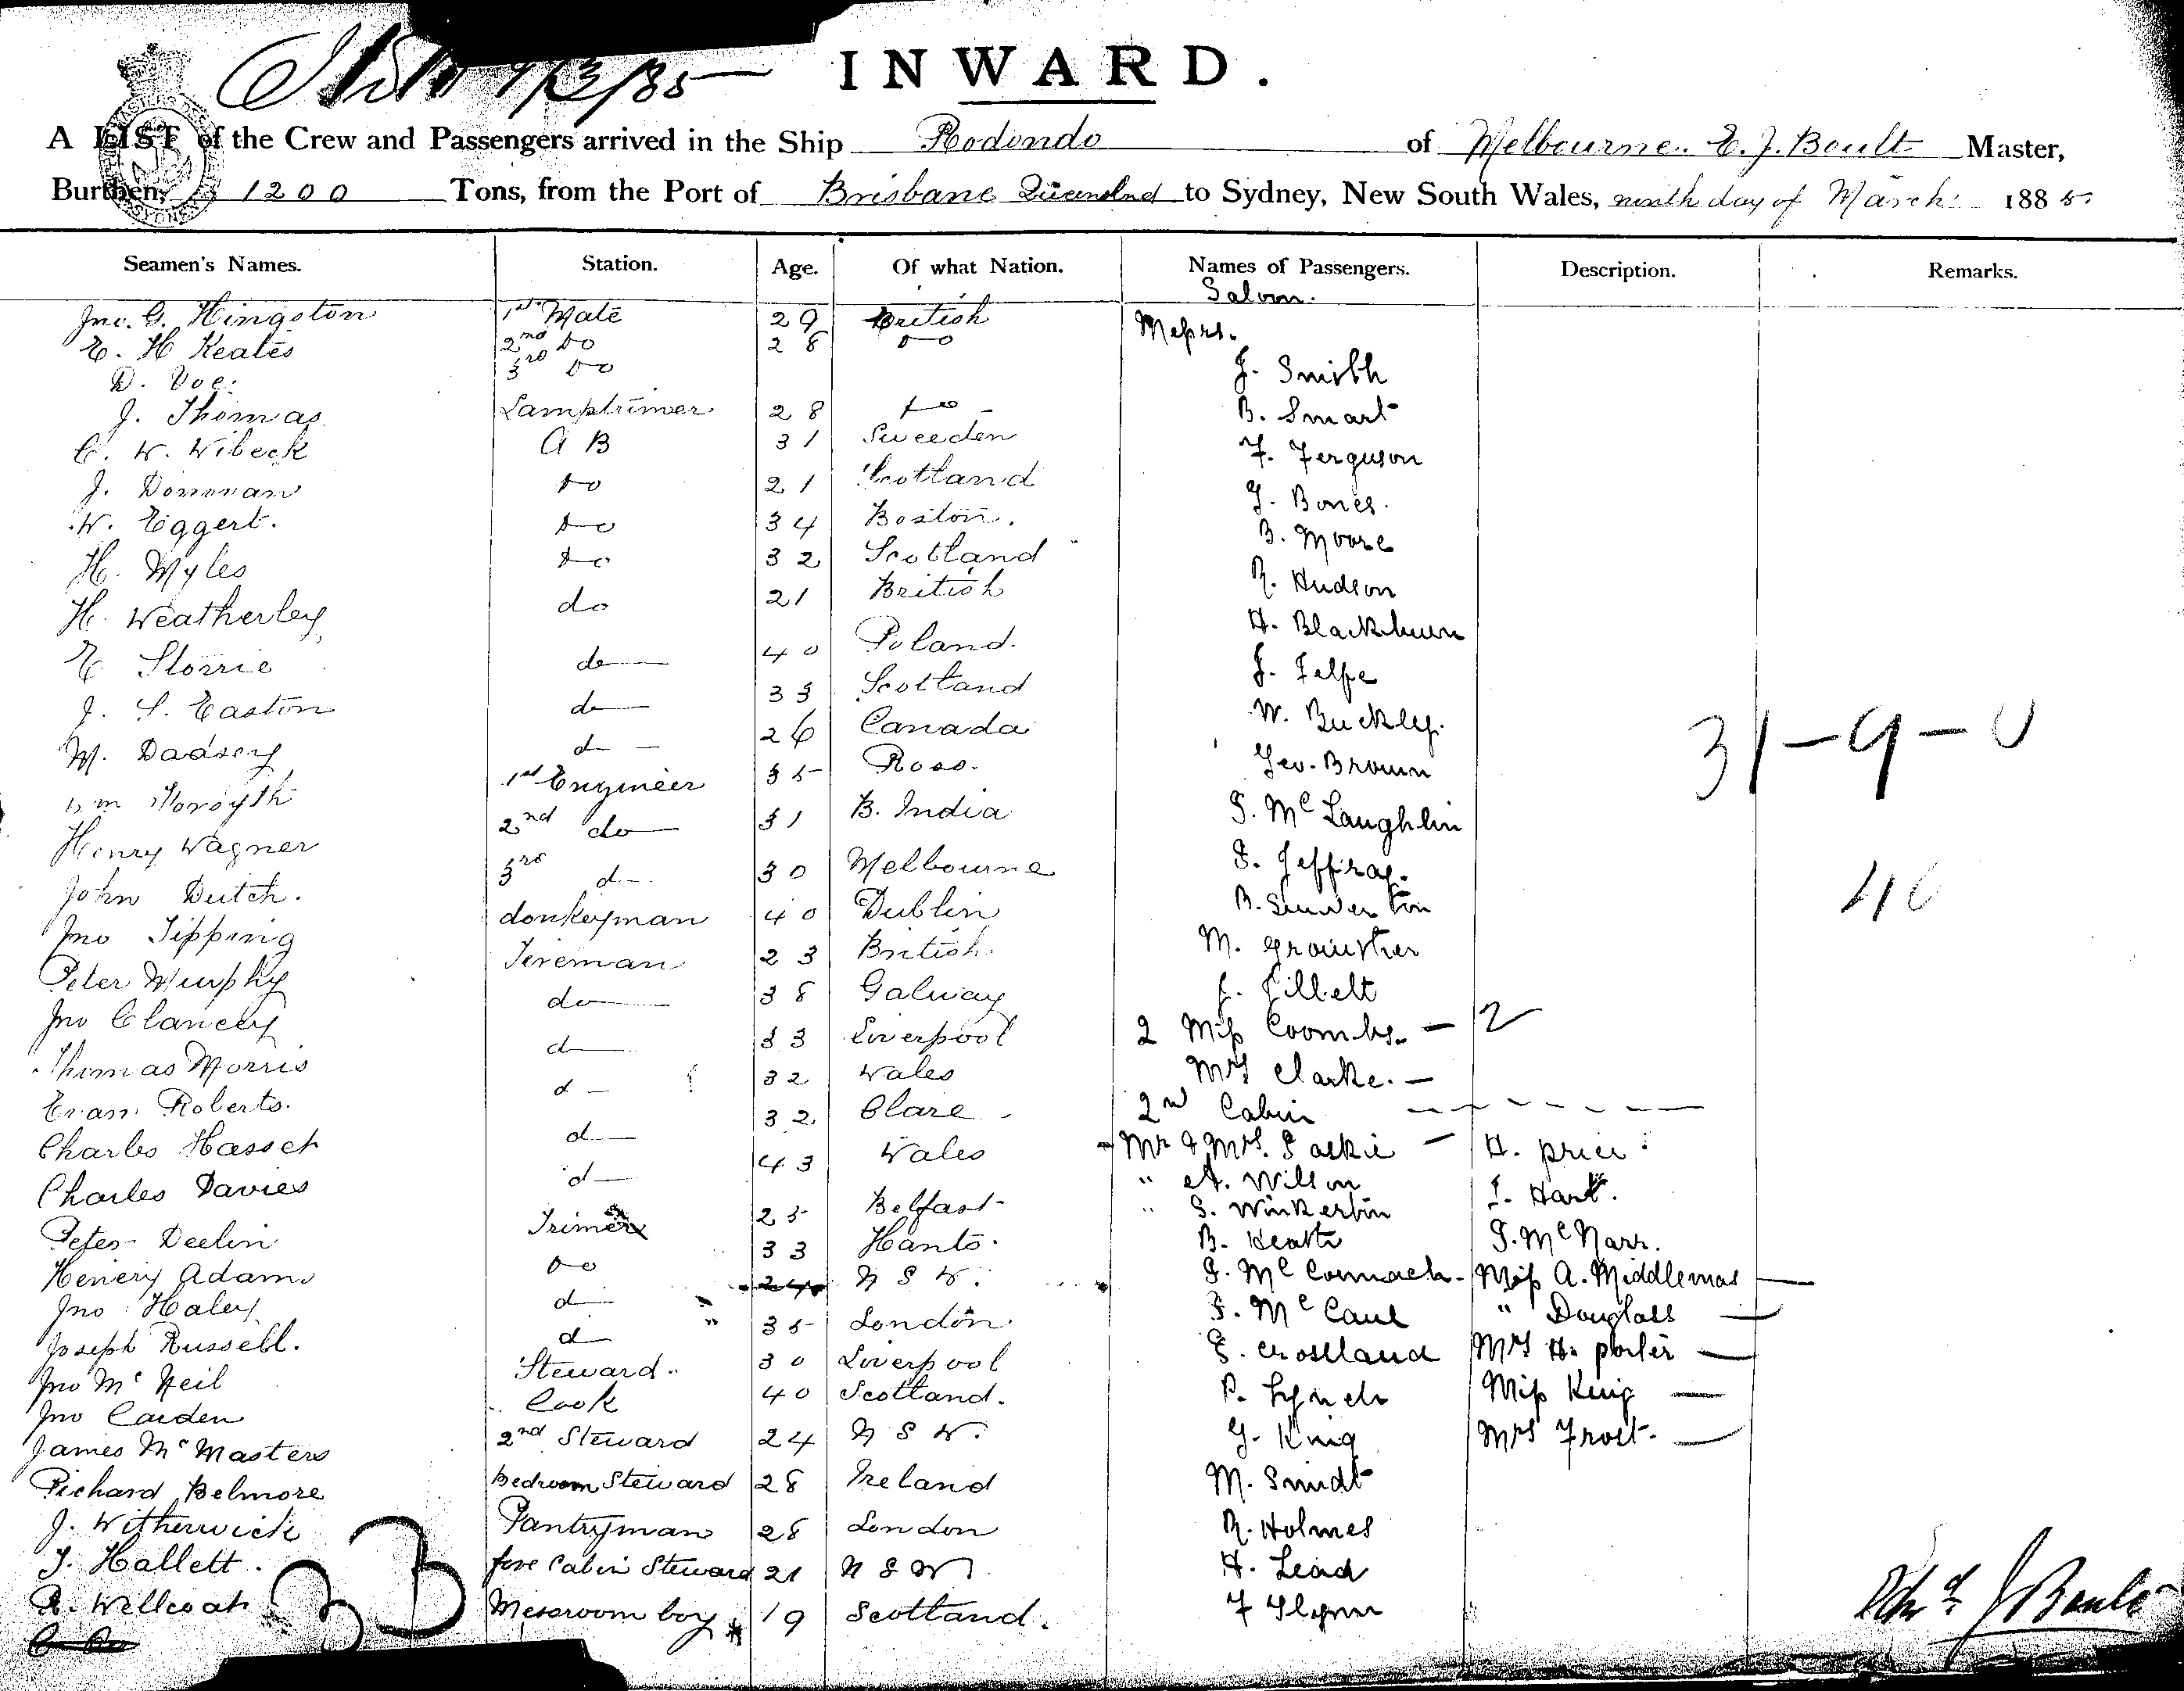 INWARD.
A LIST of the Crew and Passengers arrived in the Ship Rodondo of Melbourne. E. J. Boult Master,
Burthen, 1200 Tons, from the Port of Brisbane Queensland to Sydney, New South Wales, ninth day of March 1885
Seamen's Names. Station. Age. Of what Nation. Names of Passengers. Description. Remarks.
Saloon.
Jno. G. Hingston 1st Mate 29 British Messrs.
E. H Keates 2nd Do 28 Do
D. Voe. 3rd Do J. Smith
J. Thomas Lamptrimer 28 Do B. Smart
C. W. Wibeck A B 31 Sweeden F. Ferguson
J. Donovan Do 21 Scotland J. Bones.
W. Eggert. Do 34 Boston. B. Moore
H. Myles Do 32 Scotland R. Hudson
H. Weatherley do 21 British H. Blackburn
E Storrie do 40 Poland. J. Felpe
J. S. Easton do 33 Scotland W. Buckley.
M. Dadsey d 26 Canada Geo. Brown
Wm Forsyth 1st Engineer 35 Ross. 31-9-0
Henry Wagner 2nd do 31 B. India McLaughlin
John Dutch. 3rd d 30 Melbourne Jeffray.
Jno Tipping donkeyman 40 Dublin
Peter Murphy Fireman 23 British. M.
Jno Clancey do 38 Galway
Thomas Morris d 33 Liverpool 2 Miss Coombs. - 2
Evan Roberts. d 32 Wales Mrs Clarke. -
Charles Hasset d 32 Clare 2nd Cabin
Charles Davies d 43 Wales Mr & Mrs. H. Price
" A. Wilson Hart.
Peter Deelin Trimer 25 Belfast " S. Winkerlin
Henery Adams Do 33 Hants. B. J. McNarr.
Jno Haley d 24 N S W. McCormack Miss A. Middlemas
Joseph Russell. d 35 London McCaul " Douglass
Jno McNeil Steward. 30 Liverpool Crossland Mrs H. Porter
Jno Carden Cook 40 Scotland. P. Lynch Miss King
James McMasters 2nd Steward 24 N S W. G. King Mrs Frost.
Richard Belmore Bedroom Steward 28 Ireland M. Smidt
J. Witherwick Pantryman 28 London R. Holmes
J. Hallett. fore Cabin Steward 21 N S W H. Lead
R. Wellcoat Messroom boy 19 Scotland. F Flynn
33